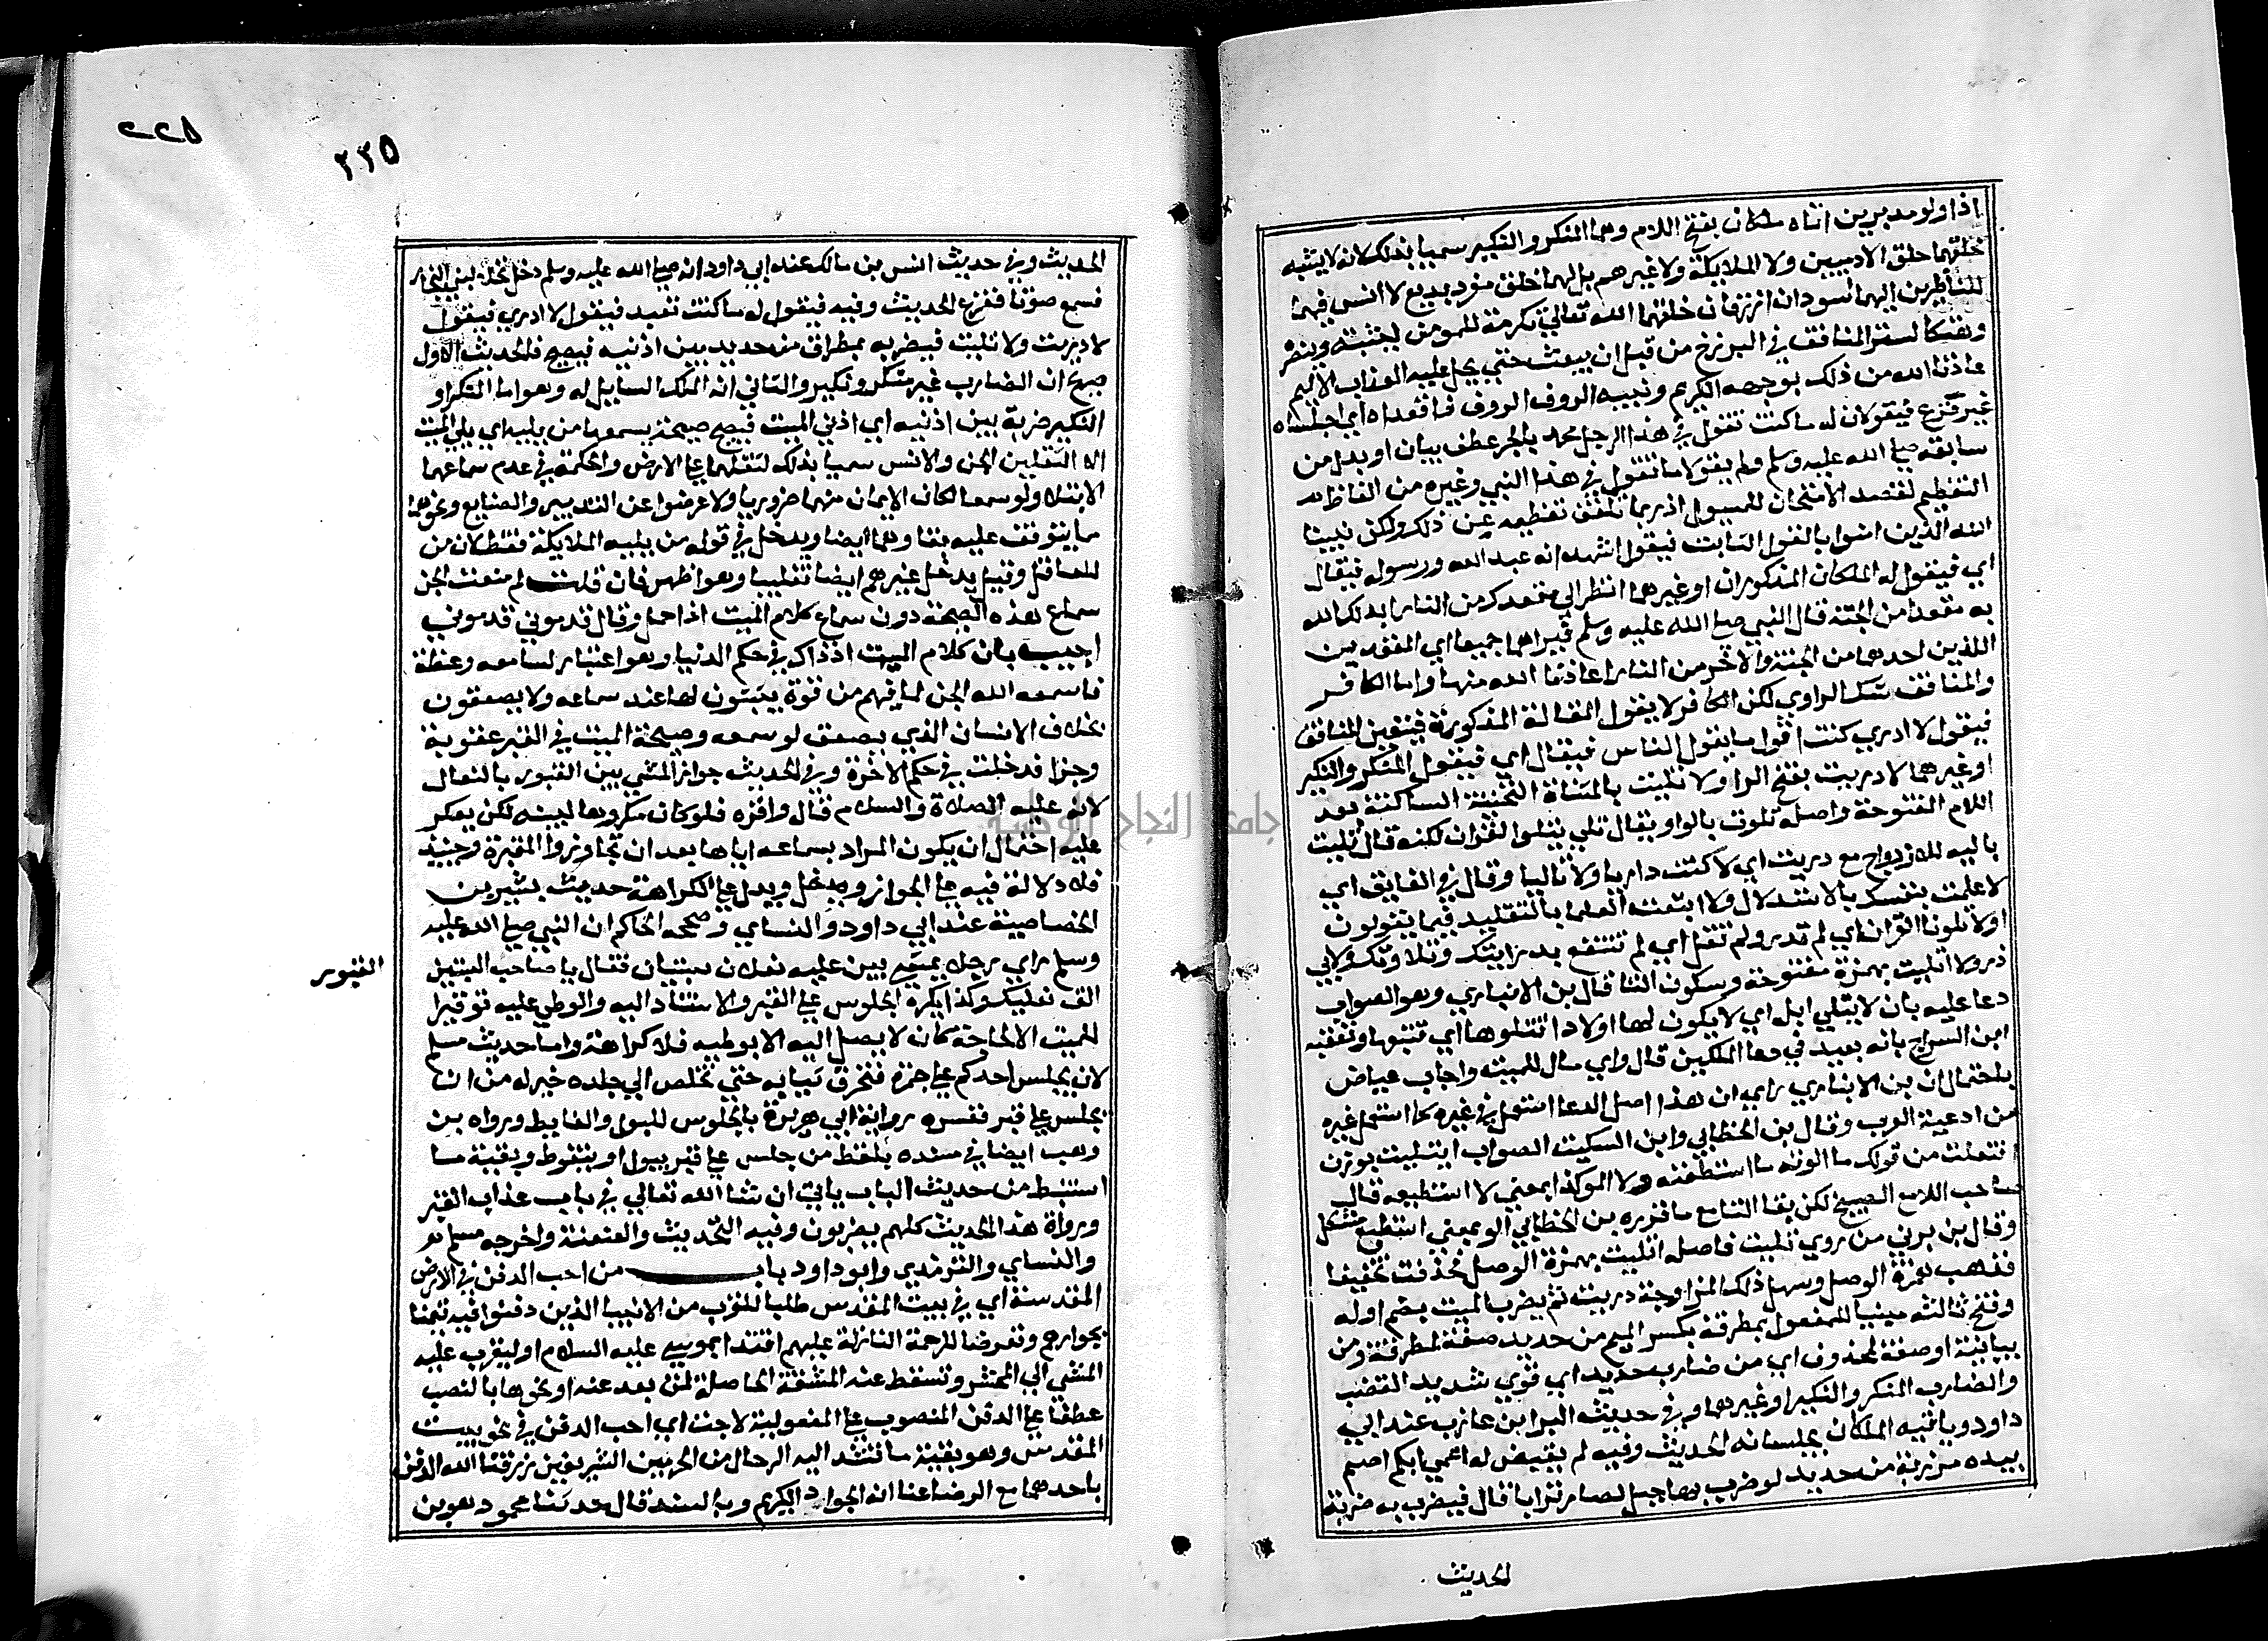 اذا ولو مدبرين اتاه ملكان بفتح اللام وهما المنكر والنكير سميا بذلك لانه لا يشبه
خلقهما خلق الادميين ولا الملايكة ولا غيرهم بل لهما خلق منفرد بديع لا انس فيهما
للناظرين اليهما اسودان ازرقان خلقهما الله تعالي تكرمة للمومن ليثبته وينصره
وهتكا لستر المنافق في البرزخ من قبل ان يبعث حتي يحل عليه العذاب الاليم
عاذنا الله من ذلك بوجهه الكريم ونبيه الروف الروف فاقعداه اي اجلساه
غير فزع فيقولان له ما كنت تقول في هذا الرجل محمد بالجر عطف بيان او بدل من
سابقه صلي الله عليه وسلم ولم يقولا ما تقول في هذا النبي وغيره من الفاظ
التعظيم لقصد الامتحان للمسول اذ ربما تلقن تعظيمه عن ذلك ولكن يثبت
الله الذين امنوا بالقول الثابت فيقول اشهد انه عبد الله ورسوله فيقال
اي فيقول له الملكان المذكوران او غيرهما انظر الي مقعدك من النار ابدلك الله
به مقعدا من الجنة قال النبي صلي الله عليه وسلم فيراهما جميعا اي المقعدين
اللذين احدهما من الجنة والاخر من النار اعاذنا الله منها واما الكافر
والمنافق شك الراوي لكن الكافر لا يقول المقالة المذكورة فيتعين المنافق
فيقول لا ادري كنت اقول ما يقول الناس فيقال اي فيقول المنكر والنكير
او غيرهما لا دريت بفتح الرا ولا تليت بالمثناة التحتية الساكنة بعد
اللام المفتوحة واصله تلوت بالواو يقال تلي يتلوا القران لكنه قال تليت
باليه للازدواج مع دريت اي لا كنت داريا ولا تاليا وقال في الفايق اي
لا علمت بنفسك بالاستدلال ولا اتبعت العلما بالتقليد فيما يقولون
او لا تلوت القران اي لم تدر ولم تتل اي لم تنتفع بدرايتك وتلاوتك ولابي
ذر ولا اتليت بهمزة مفتوحة وسكون التا قال بن الانباري وهو الصواب
دعا عليه بان لا يتلي ابله اي لا يكون لها اولاد تتلوها اي تتبعها وتعقبه
ابن السراج بانه بعيد في دعا الملكين قال واي مال للميت واجاب عياض
باحتمال ان بن الانباري راي ان هذا اصل الدعا استعمل في غيره كما استعمل غيره
من ادعية العرب وقال بن الخطابي وابن السكيت الصواب ايتليت بوزن
افتعلت من قولك ما الوته ما استطعته ولا الو كذا بمعني لا استطيعه قال
صاحب اللامع الصبيح لكن بقا التا مع ما قرره بن الخطابي الو بمعني استطيع مشكل
وقال بن بري من روي تليت فاصله اتليت بهمزة الوصل فحذفت تخفيفا
فذهب همزة الوصل وسهل ذلك المزاوجة دريت ثم يضرب الميت بضم اوله
وفتح ثالثه مبنيا للمفعول بمطرقة بكسر الميم من حديد صفة لمطرقة ومن
بيانية او صفة لمحذوف اي من ضارب حديد اي قوي شديد الغضب
والضارب المنكر والنكير او غيرهما وفي حديث البرا بن عازب عند ابي
داود وياتيه الملكان يجلسانه الحديث وفيه ثم يقيض له اعمي ابكم اصم
بيده مرزبة من حديد لو ضرب بها جبل لصار ترابا قال فيضربه به ضربة
الحديث
٢٢٥
٢٣٥
الحديث وفي حديث انس بن مالك عند ابي داود انه صلي الله عليه وسلم دخل نخلا لبني النجار
فسمع صوتا ففزع الحديث وفيه فيقول له ما كنت تعبد فيقول لا ادري فيقول
لا دريت ولا تليت فيضربه بمطراق من حديد بين اذنيه فيصيح فالحديث الاول
صرح ان الضارب غير منكر ونكير والثاني انه الملك السايل له وهو اما المنكر او
النكير ضربة بين اذنيه اي اذني الميت فيصيح صيحة يسمعها من يليه اي يلي الميت
الا الثقلين الجن والانس سميا بذلك لثقلهما علي الارض والحكمة في عدم سماعهما
الابتلا ولو سمعا لكان الايمان منهما ضروريا ولاعرضوا عن التدبير والصنايع ونحوهما
مما يتوقف عليه بقاوهما ايضا ويدخل في قوله من يليه الملايكة فقط لان من
للعاقل وقيل يدخل غيرهم ايضا تغليبا وهو اظهر فان قلت لم منعت الجن
سماع هذه الصيحة دون سماع كلام الميت اذا حمل وقال قدموني قدموني
اجيب بان كلام الميت اذ ذاك في حكم الدنيا وهو اعتبار لسامعه وعظة
فاسمعه الله الجن لما فيهم من قوة يثبتون لها عند سماعه ولا يصعقون
بخلاف الانسان الذي يصعق لو سمعه وصيحة الميت في القبر عقوبة
وجزا قد دخلت في حكم الاخرة وفي الحديث جواز المشي بين القبور بالنعال
لانه عليه الصلاة والسلام قال واقره فلو كان مكروها لبينه لكن يعكر
عليه احتمال ان يكون المراد بسماعه اياها بعد ان تجاوزوا المقبرة وحينيذ
فلا دلالة فيه علي الجواز ويدل علي الكراهة حديث بشير بن
الخصاصية عند ابي داود والنساي وصححه الحاكم ان النبي صلي الله عليه
وسلم راي رجلا يمشي بين عليه نعلان سبتيان فقال يا صاحب السبتين
القبور
الق نعليك وكذا يكره الجلوس علي القبر والاستناد اليه والوطي عليه توقيرا
للميت الا لحاجة كان لا يصل اليه الا بوطيه فلا كراهة واما حديث مسلم
لان يجلس احدكم علي جمرة فتحرق ثيابه حتي تخلص الي جلده خير له من ان
يجلس علي قبر ففسره رواية ابي هريرة بالجلوس للبول والغايط ورواه بن
وهب ايضا في مسنده بلفظ من جلس علي قبر يبول او يتغوط وبقية ما
استنبط من حديث الباب ياتي ان شا الله تعالي في باب عذاب القبر
ورواة هذا الحديث كلهم بصريون وفيه التحديث والعنعنة واخرجه مسلم
والنساي والترمذي وابو داود باب من احب الدفن في الارض
المقدسة اي في بيت المقدس طلبا للقرب من الانبيا الذين دفنوا فيه تيمنا
بجوارهم وتعرضا للرحمة النازلة عليهم اقتدا بموسي عليه السلام او ليقرب عليه
المشي الي المحشر وتسقط عنه المشقة الحاصلة لمن بعد عنه او نحوها بالنصب
عطفا علي الدفن المنصوب علي المفعولية لاحب اي احب الدفن في نحو بيت
المقدس وهو بقية ما تشد اليه الرحال من الحرمين الشريفين رزقنا الله الدفن
باحدهما مع الرضا عنا انه الجواد الكريم وبالسند قال حدثنا محمود هو بن